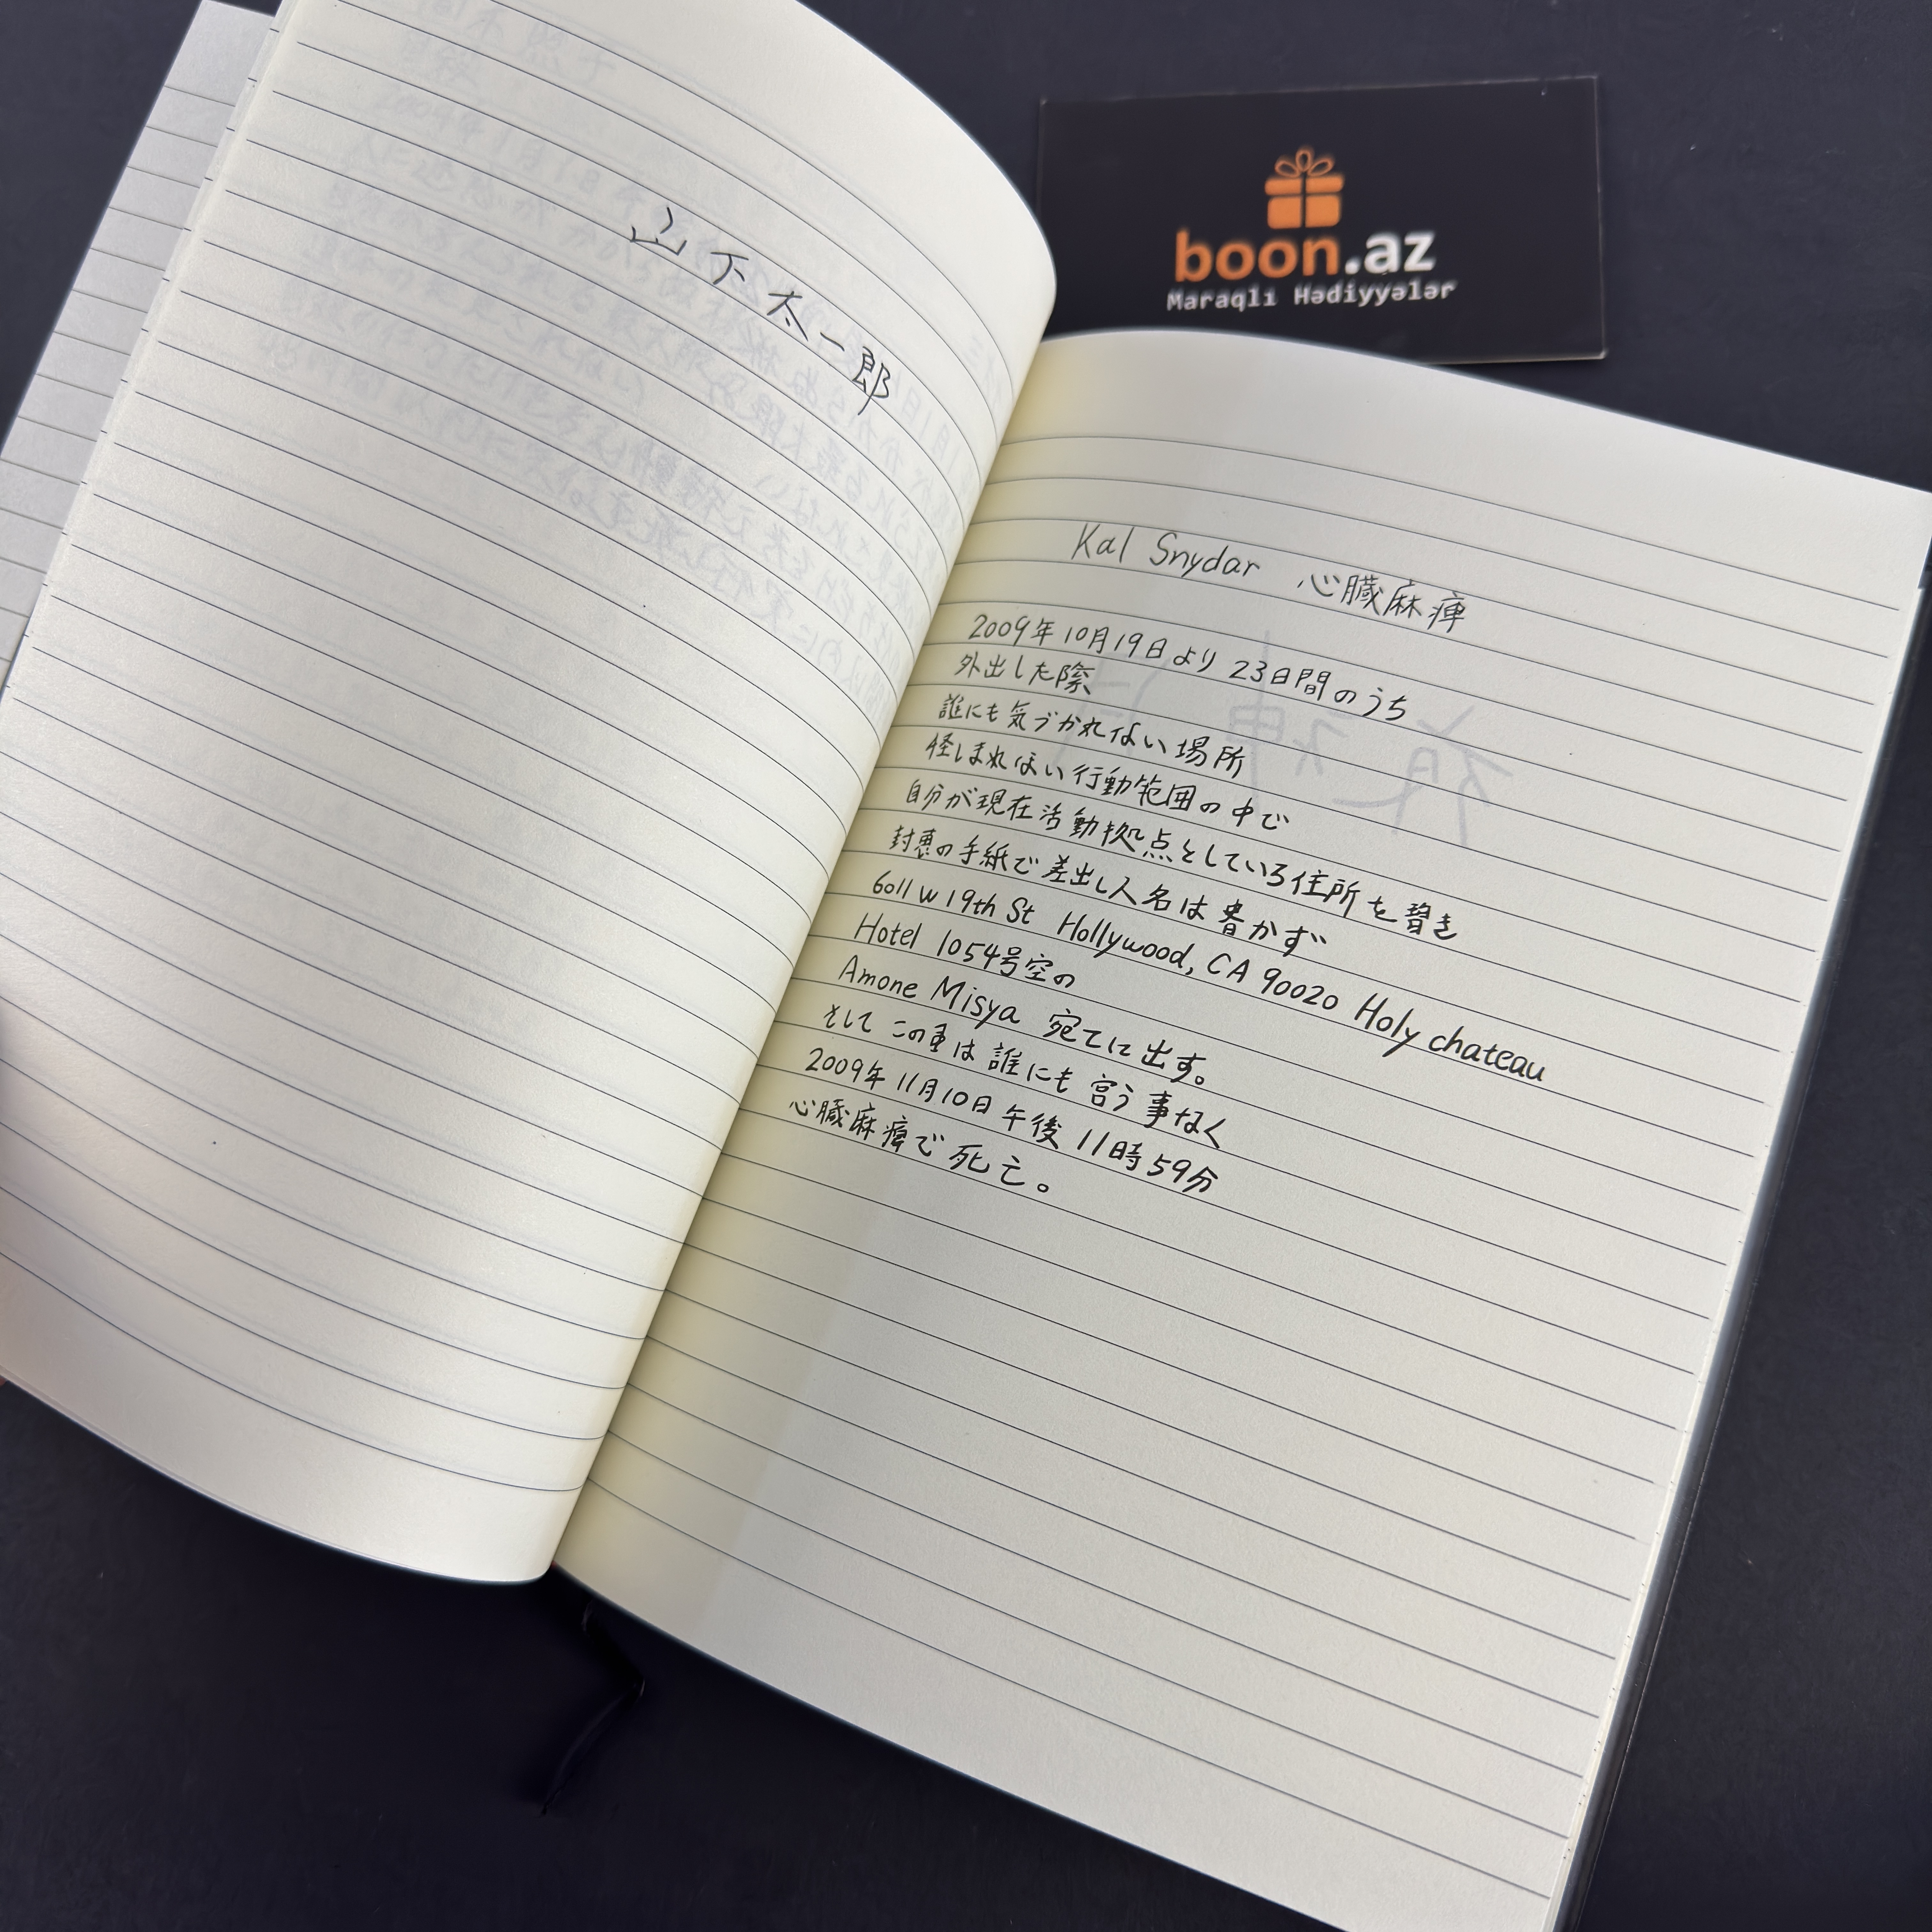 山下太一郎
boon.az
Maraqlı Hədiyyələr
Kal Snydar 心臓麻痺
2009年10月19日より23日間のうち
外出した際
誰にも気づかれない場所
怪しまれない行動範囲の中で
自分が現在活動拠点としている住所を書き
封書の手紙で差出し人名は書かず
6011 W 19th St Hollywood, CA 90020 Holy chateau
Hotel 1054号室の
Amone Misya 宛てに出す。
そしてこの事は誰にも言う事なく
2009年11月10日午後11時59分
心臓麻痺で死亡。